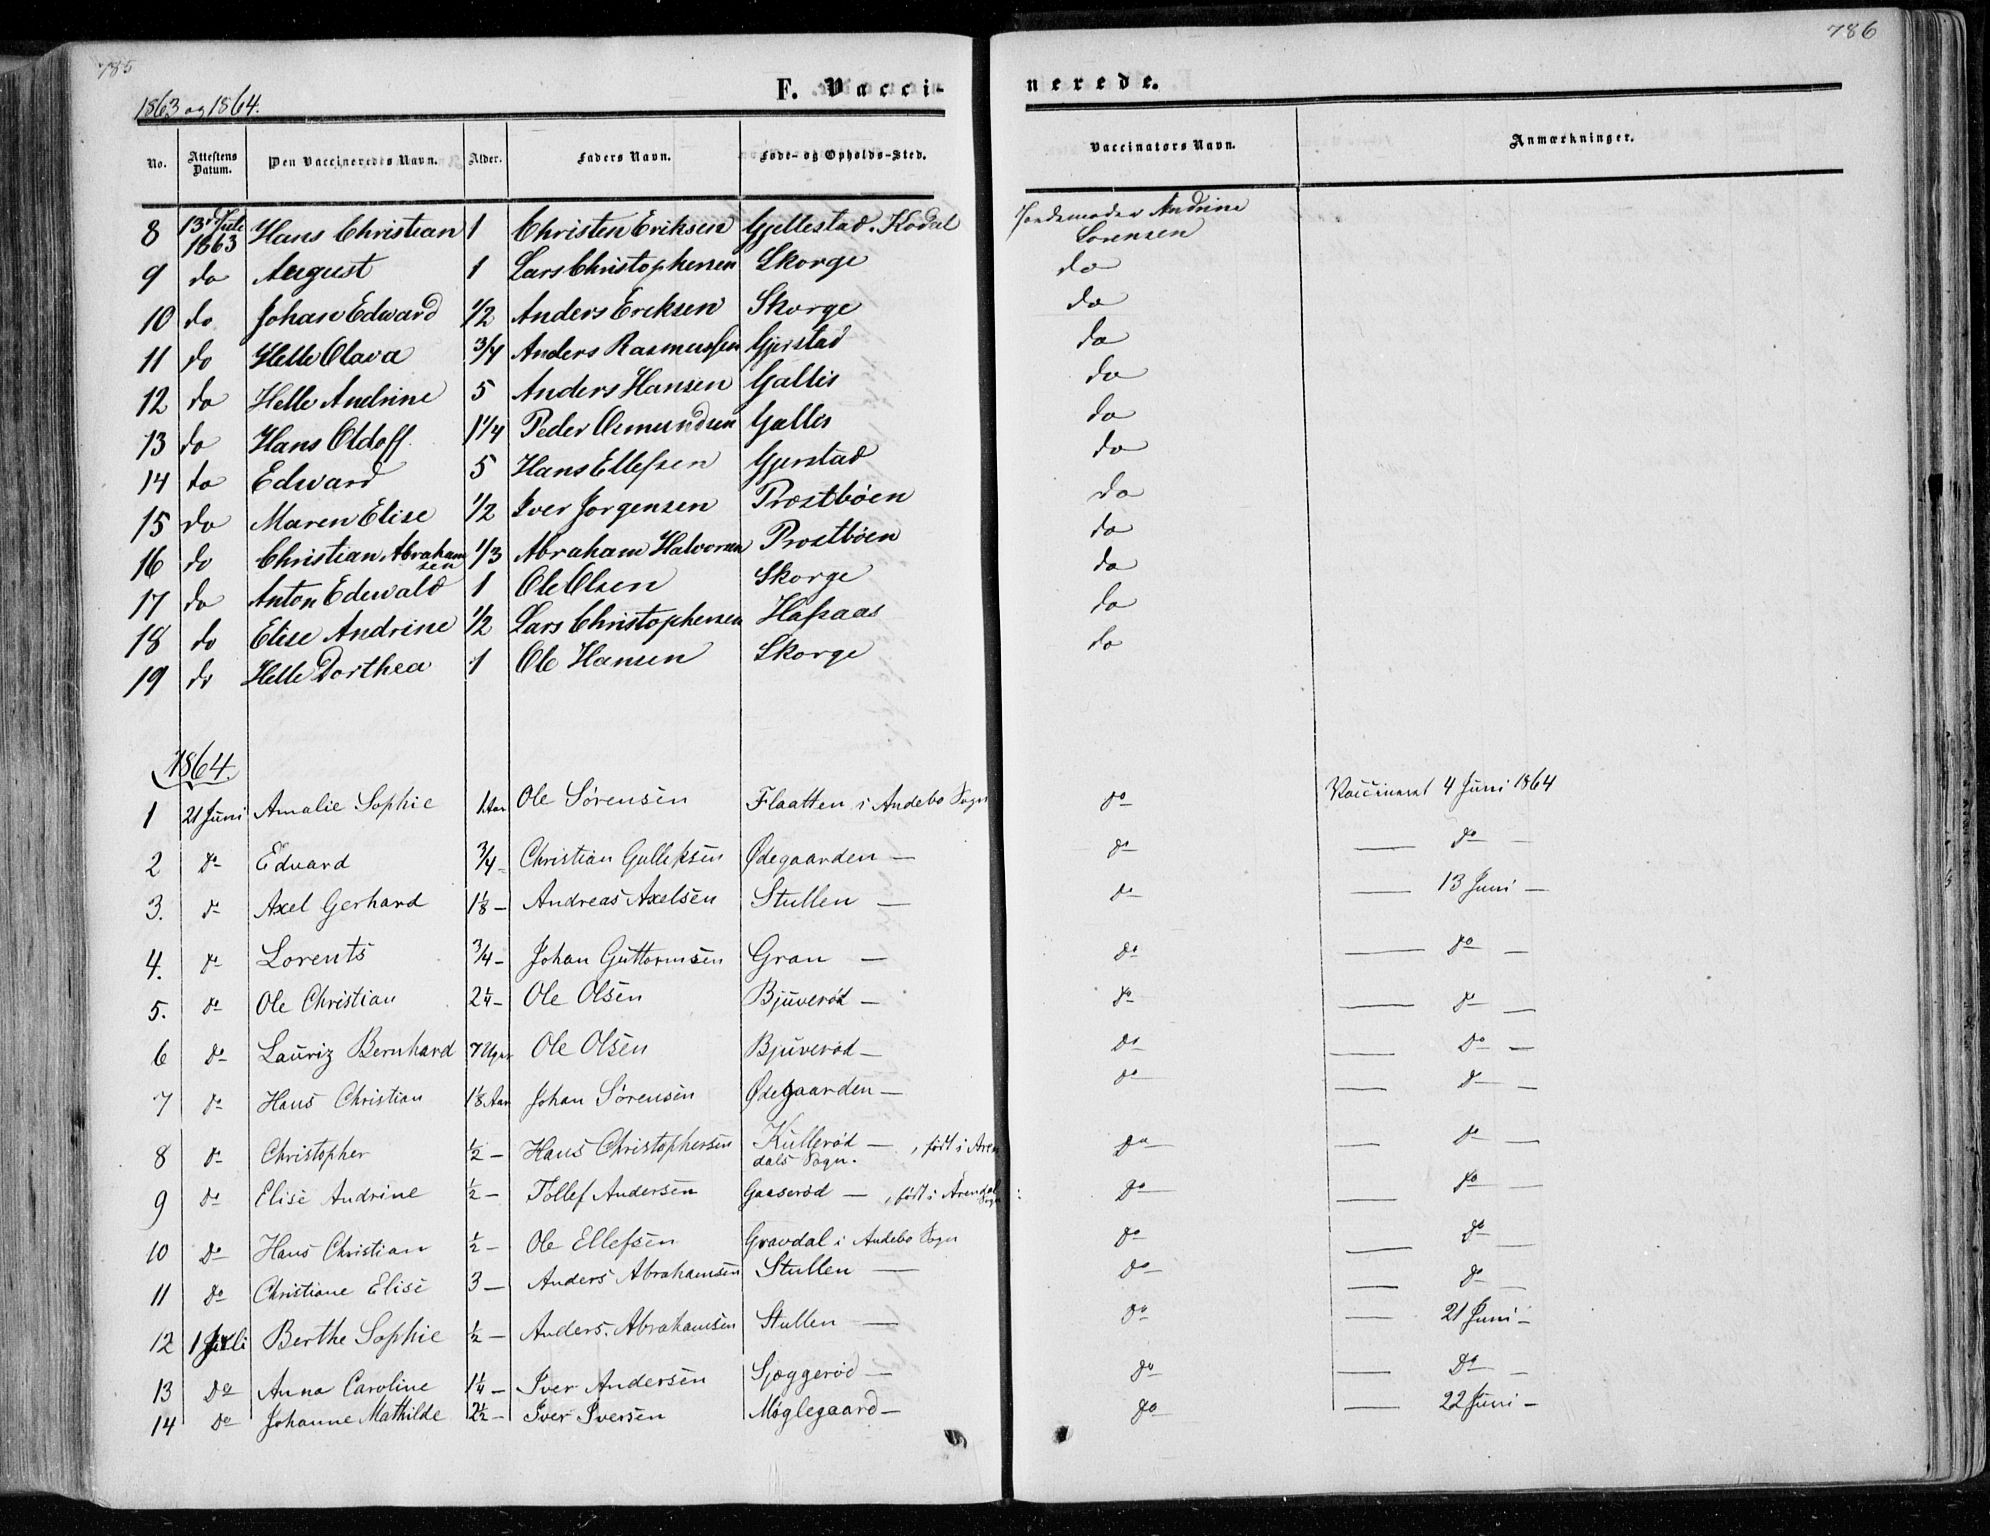 785
786
1863 og 1864.
F. Vacci-
nerede.
No. Attestens Datum. Den Vaccineredes Navn. Alder. Faders Navn. Føde- og Opholds-Sted. Vaccinators Navn. Anmærkninger.
8 13de Juli 1863 Hans Christian 1 Christen Eriksen Gjellestad. Kodal Jordemoder Andrine Sorensen
9 do August 1 Lars Christophersen Skorge do
10 do Johan Edward 1/2 Anders Ericksen Skorge do
11 do Helle Olava 3/4 Anders Rasmussen Gjerstad do
12 do Helle Andrine 5 Anders Hansen Gallis do
13 do Hans Oldoff 1 1/4 Peder Osmundsen Gallis do
14 do Edward 5 Hans Ellefsen Gjerstad do
15 do Maren Elise 1/2 Iver Jorgensen Prostböen do
16 do Christian Abrahamsen 1/3 Abraham Halvorsen Prostböen do
17 do Anton Edewald 1 Ole Olsen Skorge do
18 do Elise Andrine 1/2 Lars Christophersen Hafsaas do
19 do Helle Dorthea 1 Ole Hansen Skorge do
1864.
1 21 Juni Amalie Sophie 1 Aar Ole Sörensen Flaatten i Andebo Sogn do Vaccineret 4 Juni 1864
2 do Edvard 3/4 - Christian Gulleksen Ødegaarden — do — do —
3. do Axel Gerhard 1 1/8 - Andreas Axelsen Stullen — do — 13 Juni —
4. do Lorents 3/4 - Johan Guttormsen Gran — do — do —
5. do Ole Christian 2 1/4 - Ole Olsen Bjuveröd — do — do —
6 do Lauriz Bernhard 7 Uger Ole Olsen Bjuveröd — do — do —
7 do Hans Christian 1 1/8 Aar Johan Sörensen Ødegaarden — do — do —
8 do Christopher 1/2 - Hans Christophersen Kulleröd — , født i Arendals Sogn. do — do —
9 do Elise Andrine 1/2 - Tollef Andersen Gaaseröd — , født i Arendal Sogn do — do —
10 do Hans Christian 1/2 - Ole Ellefsen Gravdal i Andebo Sogn do — do —
11 do Christiane Elise 3 - Anders Abrahamsen Stullen — do — do —
12 1 Juli Berthe Sophie 1/2 - Anders. Abrahamsen Stullen — do — 21 Juni -
13 do Anna Caroline 1 1/4 - Iver Andersen Sjæggeröd — do — do —
14 do Johanne Mathilde 2 1/2 - Iver Iversen Møglegaard — do — 22 Juni -